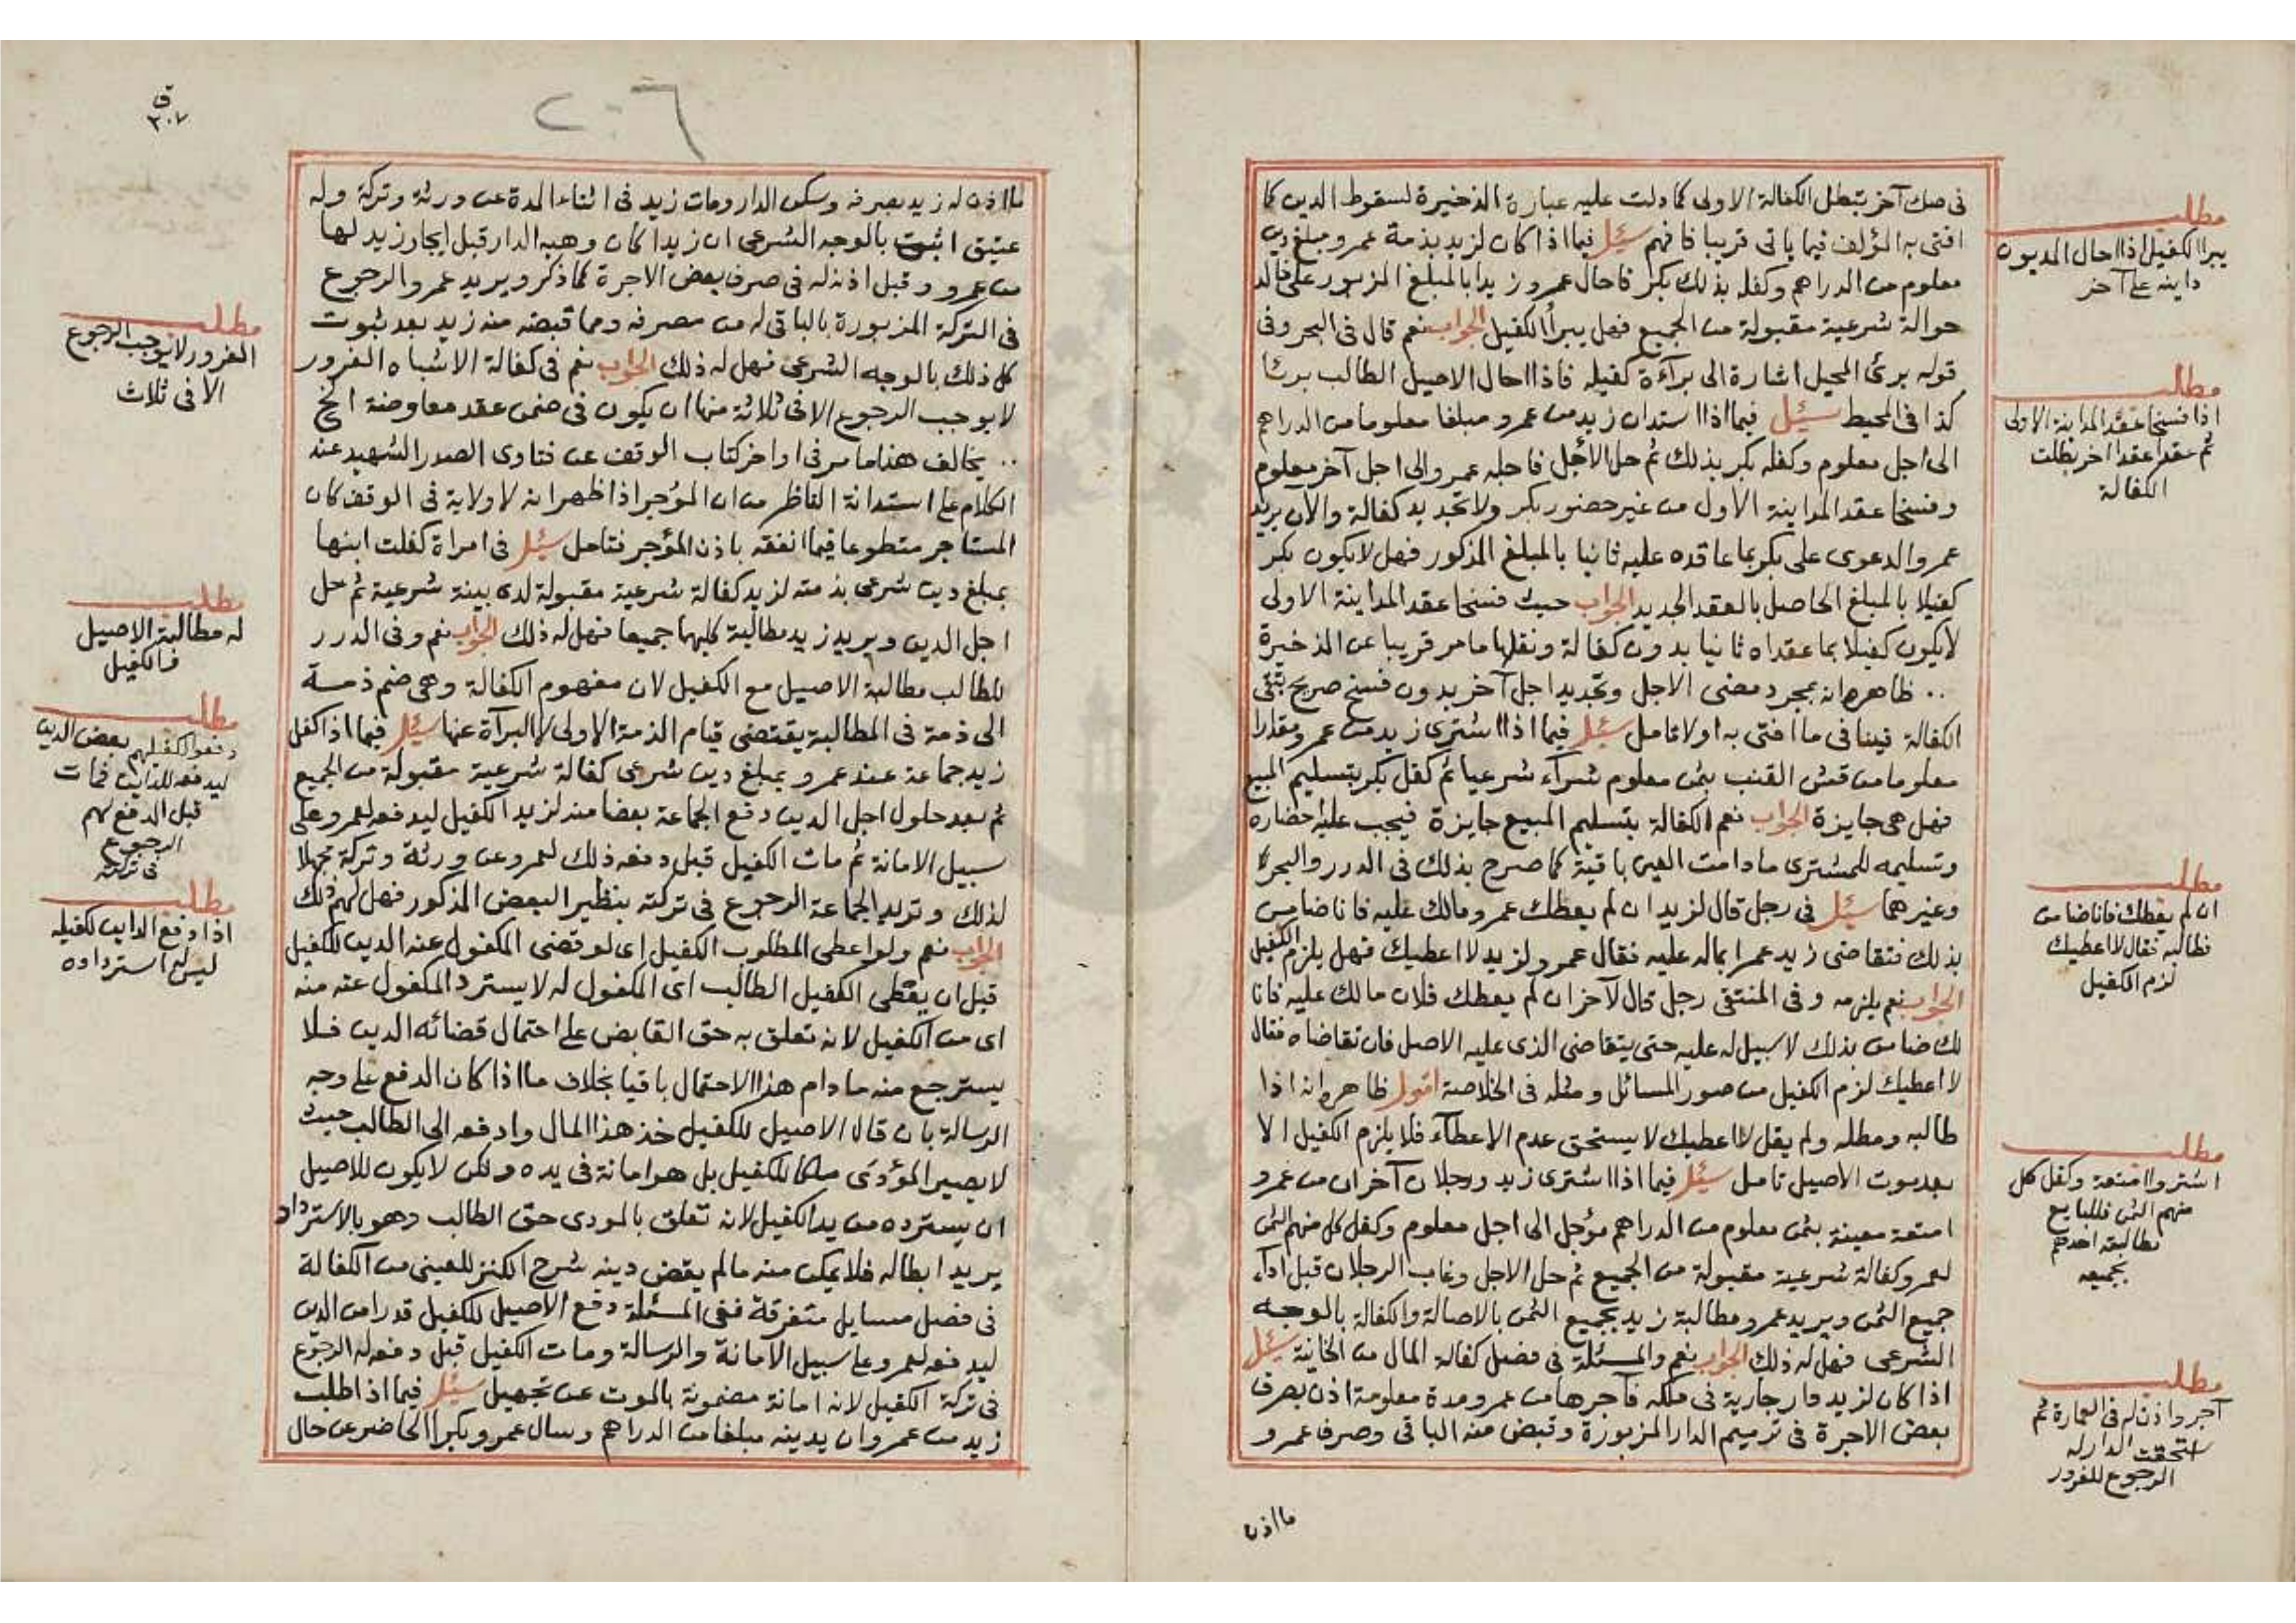 فى صك آخر تبطل الكفالة الاولى كما دلت عليه عبارة الذخيرة لسقوط الدين كما
افتى به المؤلف فيما ياتى قريبا فافهم سئل فيما اذا كان لزيد بذمة عمرو مبلغ دين
معلوم من الدراهم وكفله بذلك بكر فاحال عمرو زيدا بالمبلغ المزبور على خالد
حوالة شرعية مقبولة من الجميع فهل يبرأ الكفيل الجواب نعم قال فى البحر وفى
قوله برئ المحيل اشارة الى برآءة كفيله فاذا احال الاصيل الطالب برئا
كذا فى المحيط سئل فيما اذا استدان زيد من عمرو مبلغا معلوما من الدراهم
الى اجل معلوم وكفله بكر بذلك ثم حل الأجل فاجله عمرو الى اجل آخر معلوم
وفسخا عقد المداينة الاول من غير حضور بكر ولا تجديد كفالة والآن يريد
عمرو الدعوى على بكر بما عاقده عليه ثانيا بالمبلغ المذكور فهل لا يكون بكر
كفيلا بالمبلغ الحاصل بالعقد الجديد الجواب حيث فسخا عقد المداينة الاولى
لا يكون كفيلا بما عقداه ثانيا بدون كفالة ونقلها ما مر قريبا عن الذخيرة
.. ظاهره انه بمجرد مضى الاجل وتجديد اجل آخر بدون فسخ صريح تبقى
الكفالة فينافى ما افتى به اولا تامل سئل فيما اذا اشترى زيد من عمرو مقدارا
معلوما من قش القنب بثمن معلوم شرآء شرعيا ثم كفل بكر بتسليم المبيع
فهل هى جايزة الجواب نعم الكفالة بتسليم المبيع جايزة فيجب عليه احضاره
وتسليمه للمشترى ما دامت العين باقية كما صرح بذلك فى الدرر والبحر
وغيرهما سئل فى رجل قال لزيد ان لم يعطك عمرو مالك عليه فانا ضامن
بذلك فتقاضى زيد عمرا بماله عليه فقال عمرو لزيد لا اعطيك فهل يلزم الكفيل
الجواب نعم يلزمه وفى المنتقى رجل قال لآخر ان لم يعطك فلان مالك عليه فانا
لك ضامن بذلك لا سبيل له عليه حتى يتقاضى الذى عليه الاصل فان تقاضاه فقال
لا اعطيك لزم الكفيل من صور المسائل ومثله فى الخلاصة اقول ظاهره انه اذا
طالبه ومطله ولم يقل لا اعطيك لا يستحق عدم الاعطآء فلا يلزم الكفيل الا
بعد موت الاصيل تامل سئل فيما اذا اشترى زيد ورجلان آخران من عمرو
امتعة معينة بثمن معلوم من الدراهم مؤجل الى اجل معلوم وكفل كل منهم الثمن
لعمرو كفالة شرعية مقبولة من الجميع ثم حل الاجل وغاب الرجلان قبل ادآء
جميع الثمن ويريد عمرو مطالبة زيد بجميع الثمن بالاصالة والكفالة بالوجه
الشرعى فهل له ذلك الجواب نعم والمسئلة فى فصل كفالة المال من الخانية سئل
اذا كان لزيد دار جارية فى ملكه فآجرها من عمرو مدة معلومة اذن بصرف
بعض الاجرة فى ترميم الدار المزبورة وقبض منه الباقى وصرف عمرو
ما اذن
مطلب
يبرا الكفيل اذا احال المديون
داينه على آخر
مطلب
اذا فسخا عقد المداينة الاولى
ثم عقدا عقدا اخر بطلت
الكفالة
مطلب
ان لم يعطك فانا ضامن
فطالبه فقال لا اعطيك
لزم الكفيل
مطلب
اشتروا امتعة وكفل كل
منهم الثمن فللبايع
مطالبة احدهم
بجميعه
مطلب
آجر واذن له فى العمارة ثم
استحقت الدار له
الرجوع للغرور
ق
٣٠٧
٢٠٦
ما اذن له زيد بصرفه وسكن الدار ومات زيد فى اثناء المدة عن ورثة وتركة وله
عتيق اثبت بالوجه الشرعى ان زيدا كان وهبه الدار قبل ايجار زيد لها
من عمرو وقبل اذنه له فى صرف بعض الاجرة كما ذكر ويريد عمرو الرجوع
فى التركة المزبورة بالباقى له من مصرفه ومما قبضه منه زيد بعد ثبوت
كل ذلك بالوجه الشرعى فهل له ذلك الجواب نعم فى كفالة الاشباه الغرور
لا يوجب الرجوع الا فى ثلاثة منها ان يكون فى ضمن عقد معاوضة الخ
.. يخالف هذا ما مر فى اواخر كتاب الوقف عن فتاوى الصدر الشهيد عند
الكلام على استدانة الناظر من ان المؤجر اذا ظهر انه لا ولاية فى الوقف كان
المستاجر متطوعا فيما انفقه باذن المؤجر فتامل سئل فى امراة كفلت ابنها
بمبلغ دين شرعى بذمته لزيد كفالة شرعية مقبولة لدى بينة شرعية ثم حل
اجل الدين ويريد زيد مطالبة كليهما جميعا فهل له ذلك الجواب نعم وفى الدرر
للطالب مطالبة الاصيل مع الكفيل لان مفهوم الكفالة وهى ضم ذمة
الى ذمة فى المطالبة يقتضى قيام الذمة الاولى لا البرآة عنها سئل فيما اذا كفل
زيد جماعة عند عمرو بمبلغ دين شرعى كفالة شرعية مقبولة من الجميع
ثم بعد حلول اجل الدين دفع الجماعة بعضا منه لزيد الكفيل ليدفعه لعمرو على
سبيل الامانة ثم مات الكفيل قبل دفعه ذلك لعمرو عن ورثة وتركة مجهلا
لذلك وتريد الجماعة الرجوع فى تركته بنظير البعض المذكور فهل لهم ذلك
الجواب نعم ولو اعطى المطلوب الكفيل اى لو قضى المكفول عنه الدين للكفيل
قبل ان يعطى الكفيل الطالب اى المكفول له لا يسترد المكفول عنه منه
اى من الكفيل لانه تعلق به حق القابض على احتمال قضائه الدين فلا
يسترجع منه ما دام هذا الاحتمال باقيا بخلاف ما اذا كان الدفع على وجه
الرسالة بان قال الاصيل للكفيل خذ هذا المال وادفعه الى الطالب حيث
لا يصير المؤدى ملكا للكفيل بل هو امانة فى يده ولكن لا يكون للاصيل
ان يسترده من يد الكفيل لانه تعلق بالمودى حق الطالب وهو بالاسترداد
يريد ابطاله فلا يمكن منه ما لم يقض دينه شرح الكنز للعينى من الكفالة
فى فصل مسايل متفرقة ففى المسئلة دفع الاصيل للكفيل قدرا من الدين
ليدفعه لعمرو على سبيل الامانة والرسالة ومات الكفيل قبل دفعه له الرجوع
فى تركة الكفيل لانه امانة مضمونة بالموت عن تجهيل سئل فيما اذا طلب
زيد من عمرو ان يدينه مبلغا من الدراهم وسال عمرو بكرا الحاضر عن حال
مطلب
الغرور لا يوجب الرجوع
الا فى ثلاث
مطلب
له مطالبة الاصيل
فالكفيل
مطلب
دفعوا لكفيلهم بعض الدين
ليدفعه للداين فمات
قبل الدفع لهم
الرجوع
فى تركته
مطلب
اذا دفع الداين لكفيله
ليس له استرداده